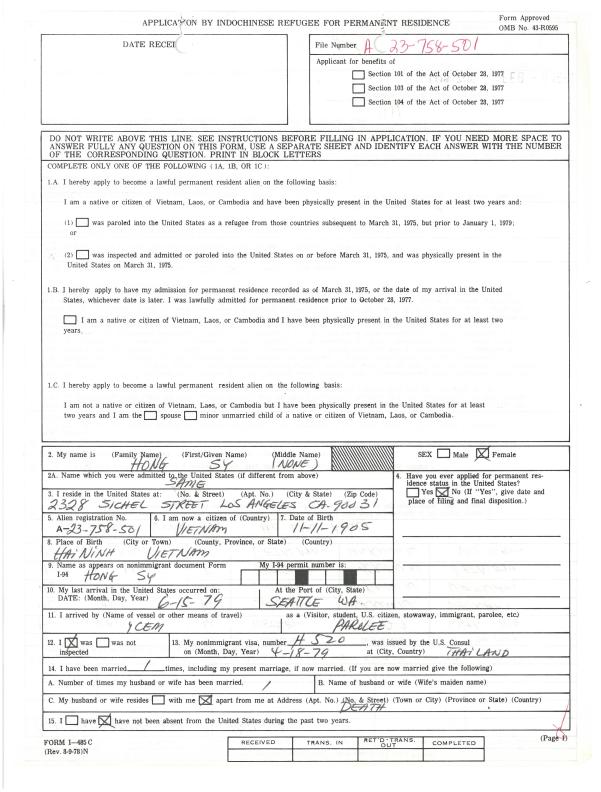 APPLICATION BY INDOCHINESE REFUGEE FOR PERMANENT RESIDENCE
Form Approved
OMB No. 43-R0595
DATE RECEI
File Number AC 23-758-501
Applicant for benefits of
Section 101 of the Act of October 28, 1977
Section 103 of the Act of October 28, 1977
Section 104 of the Act of October 28, 1977
DO NOT WRITE ABOVE THIS LINE. SEE INSTRUCTIONS BEFORE FILLING IN APPLICATION. IF YOU NEED MORE SPACE TO
ANSWER FULLY ANY QUESTION ON THIS FORM, USE A SEPARATE SHEET AND IDENTIFY EACH ANSWER WITH THE NUMBER
OF THE CORRESPONDING QUESTION. PRINT IN BLOCK LETTERS
COMPLETE ONLY ONE OF THE FOLLOWING (1A, 1B, OR 1C):
1.A I hereby apply to become a lawful permanent resident alien on the following basis:
I am a native or citizen of Vietnam, Laos, or Cambodia and have been physically present in the United States for at least two years and:
(1) was paroled into the United States as a refugee from those countries subsequent to March 31, 1975, but prior to January 1, 1979;
or
(2) was inspected and admitted or paroled into the United States on or before March 31, 1975, and was physically present in the
United States on March 31, 1975.
1.B. I hereby apply to have my admission for permanent residence recorded as of March 31, 1975, or the date of my arrival in the United
States, whichever date is later. I was lawfully admitted for permanent residence prior to October 28, 1977.
I am a native or citizen of Vietnam, Laos, or Cambodia and I have been physically present in the United States for at least two
years.
1.C. I hereby apply to become a lawful permanent resident alien on the following basis:
I am not a native or citizen of Vietnam, Laos, or Cambodia but I have been physically present in the United States for at least
two years and I am the spouse minor unmarried child of a native or citizen of Vietnam, Laos, or Cambodia.
2. My name is (Family Name) (First/Given Name) (Middle Name)
HONG SY (NONE)
SEX Male X Female
2A. Name which you were admitted to the United States (if different from above)
SAME
3. I reside in the United States at: (No. & Street) (Apt. No.) (City & State) (Zip Code)
2328 SICHEL STREET LOS ANGELES CA. 90031
4. Have you ever applied for permanent res-
idence status in the United States?
Yes X No (If "Yes", give date and
place of filing and final disposition.)
5. Alien registration No.
A-23-758-501
6. I am now a citizen of (Country)
VIETNAM
7. Date of Birth
11-11-1905
8. Place of Birth (City or Town) (County, Province, or State) (Country)
HAI NINH VIETNAM
9. Name as appears on nonimmigrant document Form
I-94 HONG SY
My I-94 permit number is:
10. My last arrival in the United States occured on:
DATE: (Month, Day, Year) 6-15-79
At the Port of (City, State)
SEATTLE WA.
11. I arrived by (Name of vessel or other means of travel)
ICEM
as a (Visitor, student, U.S. citizen, stowaway, immigrant, parolee, etc.)
PAROLEE
12. I X was was not
inspected
13. My nonimmigrant visa, number H 520, was issued by the U.S. Consul
on (Month, Day, Year) 4-18-79 at (City, Country) THAILAND
14. I have been married 1 times, including my present marriage, if now married. (If you are now married give the following)
A. Number of times my husband or wife has been married. 1
B. Name of husband or wife (Wife's maiden name)
C. My husband or wife resides with me X apart from me at Address (Apt. No.) (No. & Street) (Town or City) (Province or State) (Country)
DEATH
15. I have X have not been absent from the United States during the past two years.
FORM I-485 C
(Rev. 8-9-78)N
RECEIVED
TRANS. IN
RET'D-TRANS. OUT
COMPLETED
(Page 1)